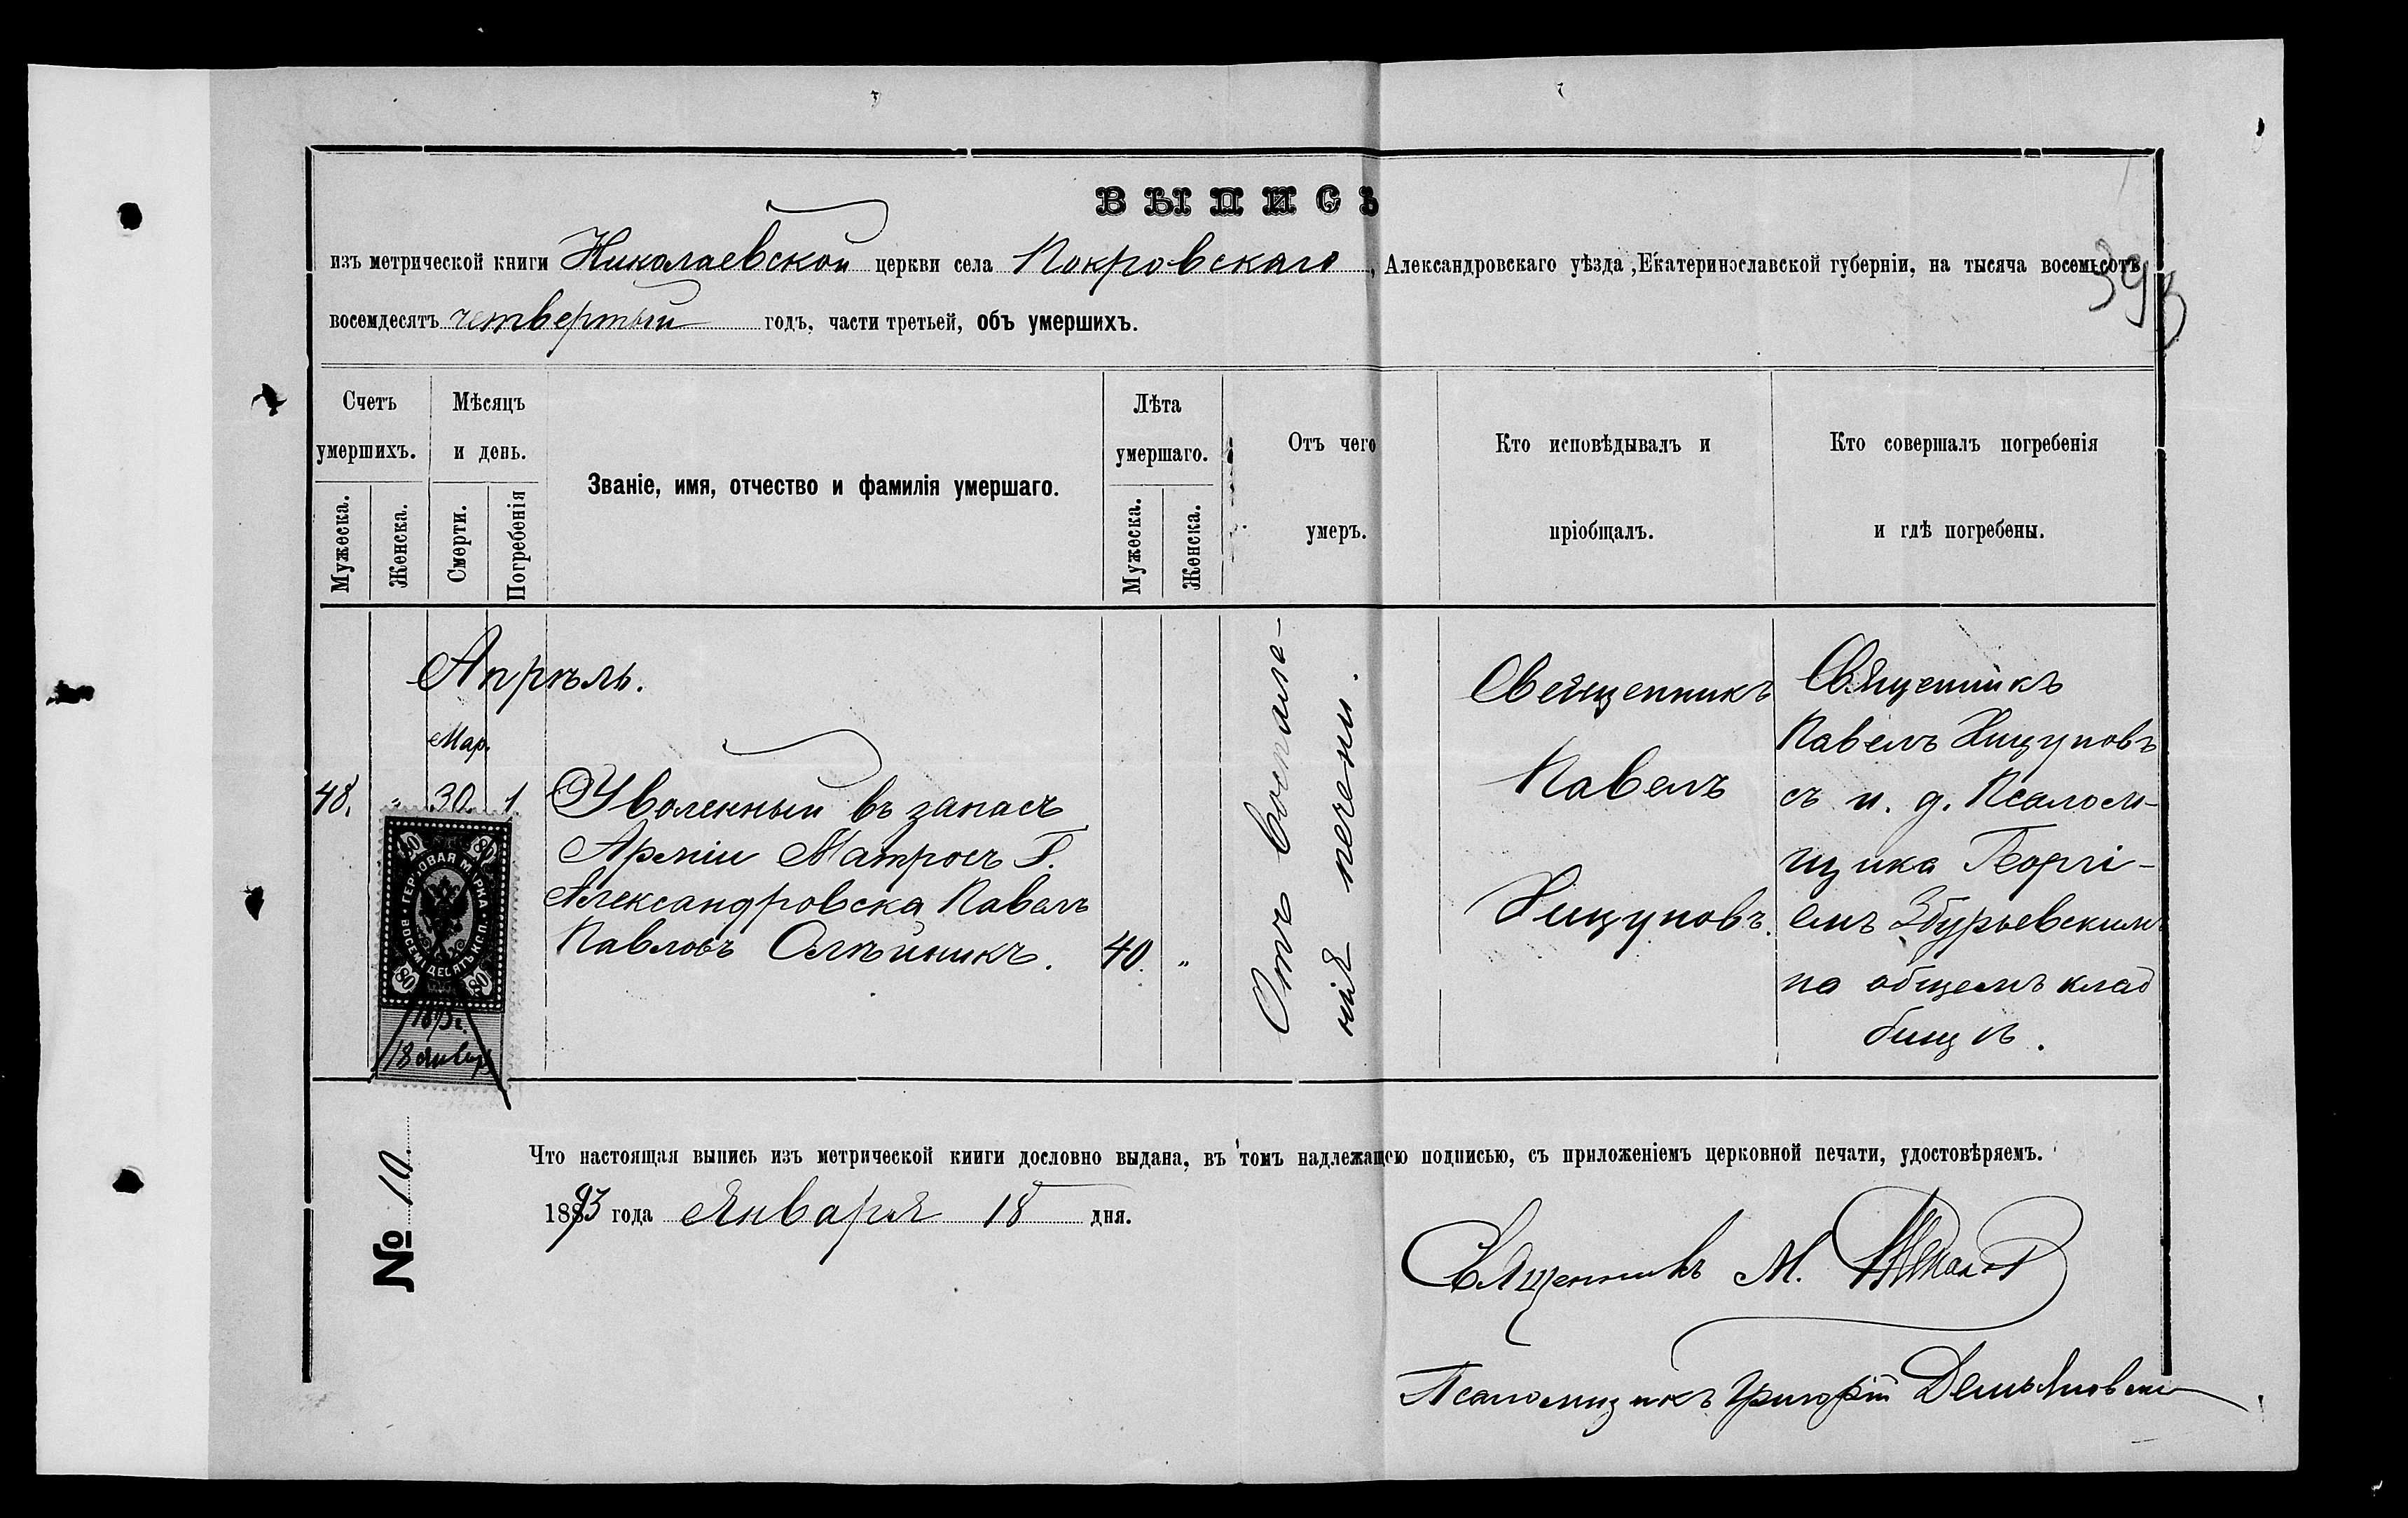 ВЫПИСЬ
изъ метрической книги Николаевской церкви села Покровскаго, Александровскаго уѣзда, Екатеринославской губерніи, на тысяча восемьсотъ
восемдесятъ четвертый годъ, части третьей, объ умершихъ.
Счетъ умершихъ.
Мужеска.
Женска.
Мѣсяцъ и день.
Смерти.
Погребенія
Званіе, имя, отчество и фамилія умершаго.
Лѣта умершаго.
Мужеска.
Женска.
Отъ чего
умеръ.
Кто исповѣдывалъ и
пріобщалъ.
Кто совершалъ погребенія
и гдѣ погребены.
Апрѣль.
Мар.
48. " 30. 1
Уволенный въ запасъ
Арміи Матросъ Г.
Александровска Павелъ
Павловъ Олѣйникъ.
40. "
Отъ воспале-
нія печени.
Священникъ
Павелъ
Хицуновъ.
Священникъ
Павелъ Хицуновъ
съ и. д. Псалом-
щика Георгі-
емъ Збурьевскимъ
на общемъ клад
бищѣ.
80 80
ГЕРБОВАЯ МАРКА
ВОСЕМЬДЕСЯТЪ КОП.
80 80
1893 г.
18 Январ
№ 10.
Что настоящая выпись изъ метрической книги дословно выдана, въ томъ надлежащею подписью, съ приложеніемъ церковной печати, удостовѣряемъ.
1893 года Января 18 дня.
Священникъ М.
Псаломщикъ Григорій Демьяновскій